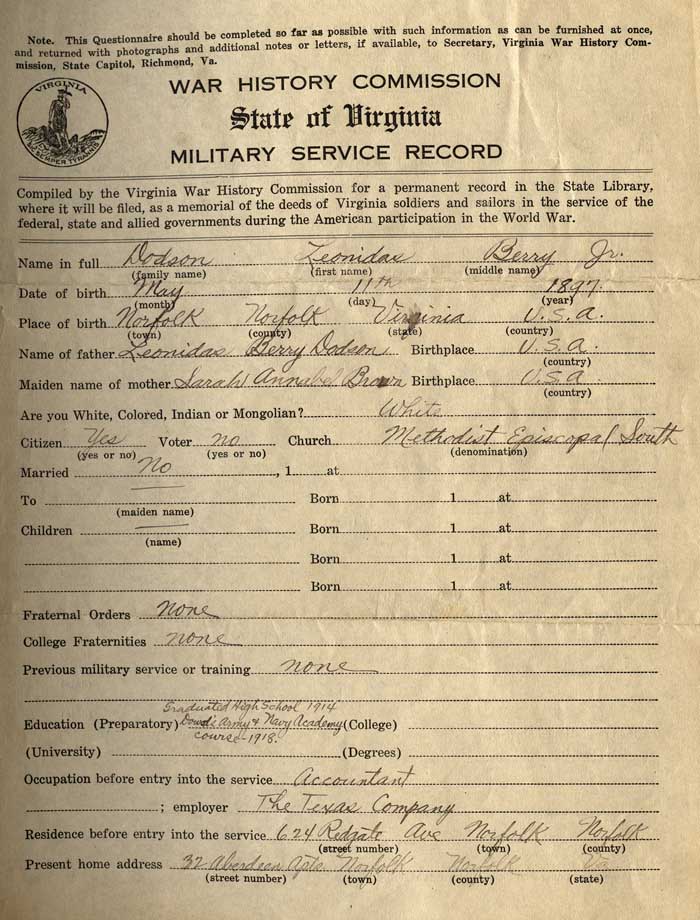 Note. This Questionnaire should be completed so far as possible with such information as can be furnished at once,
and returned with photographs and additional notes or letters, if available, to Secretary, Virginia War History Com-
mission, State Capitol, Richmond, Va.
VIRGINIA
SIC SEMPER TYRANNIS
WAR HISTORY COMMISSION
State of Virginia
MILITARY SERVICE RECORD
Compiled by the Virginia War History Commission for a permanent record in the State Library,
where it will be filed, as a memorial of the deeds of Virginia soldiers and sailors in the service of the
federal, state and allied governments during the American participation in the World War.
Name in full Dodson Leonidas Berry Jr.
(family name) (first name) (middle name)
Date of birth May 11th 1897
(month) (day) (year)
Place of birth Norfolk Norfolk Virginia U.S.A.
(town) (county) (state) (country)
Name of father Leonidas Berry Dodson Birthplace U.S.A.
(country)
Maiden name of mother Sarah Annabel Brown Birthplace U.S.A
(country)
Are you White, Colored, Indian or Mongolian? White
Citizen Yes Voter no Church Methodist Episcopal South
(yes or no) (yes or no) (denomination)
Married No , 1 at
To Born 1 at
(maiden name)
Children Born 1 at
(name)
Born 1 at
Born 1 at
Fraternal Orders none
College Fraternities none
Previous military service or training none
Graduated High School 1914
Education (Preparatory) Army & Navy Academy (College)
course - 1918.
(University) (Degrees)
Occupation before entry into the service Accountant
; employer The Texas Company
Residence before entry into the service 624 Redgate Ave Norfolk Norfolk
(street number) (town) (county)
Present home address 32 Aberdeen Apts Norfolk Norfolk Va
(street number) (town) (county) (state)